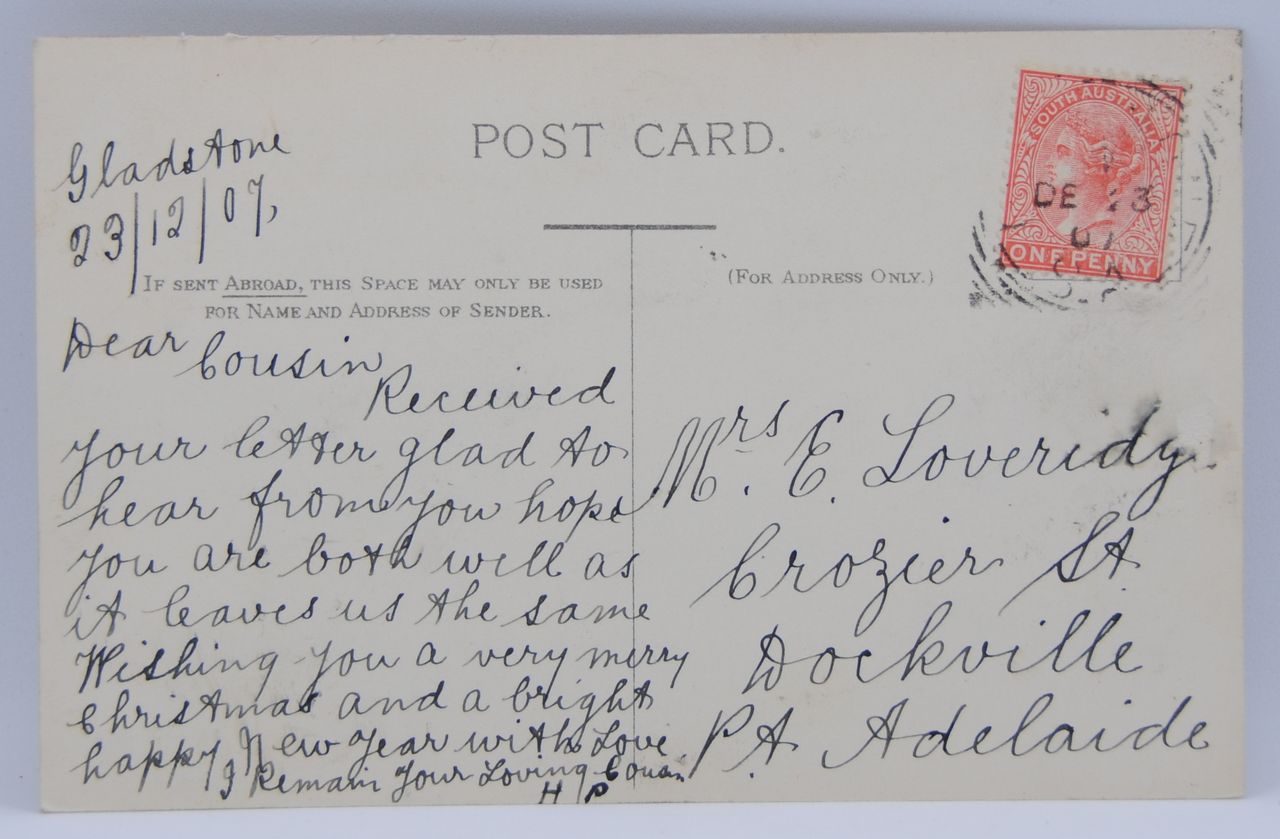 POST CARD.
SOUTH AUSTRALIA
DE 23
07
ONE PENNY
Gladstone
23/12/07,
IF SENT ABROAD, THIS SPACE MAY ONLY BE USED
FOR NAME AND ADDRESS OF SENDER.
(FOR ADDRESS ONLY.)
Dear
Cousin
Received
your letter glad to
hear from you hope
you are both well as
it leaves us the same
Wishing you a very merry
Christmas and a bright
happy New Year with Love
I Remain Your Loving Cousin
H P
Mrs. E. Loveridy.
Crozier St
Dockville
P.A Adelaide